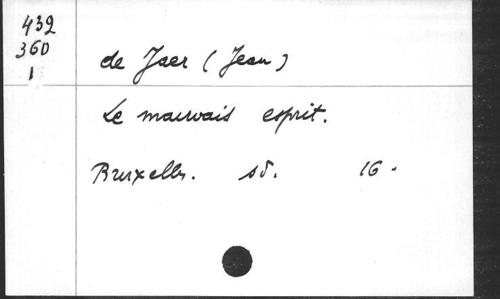 439
360
1
de Jaer (Jean)
Le mauvais esprit.
Bruxelles. sd. 16.